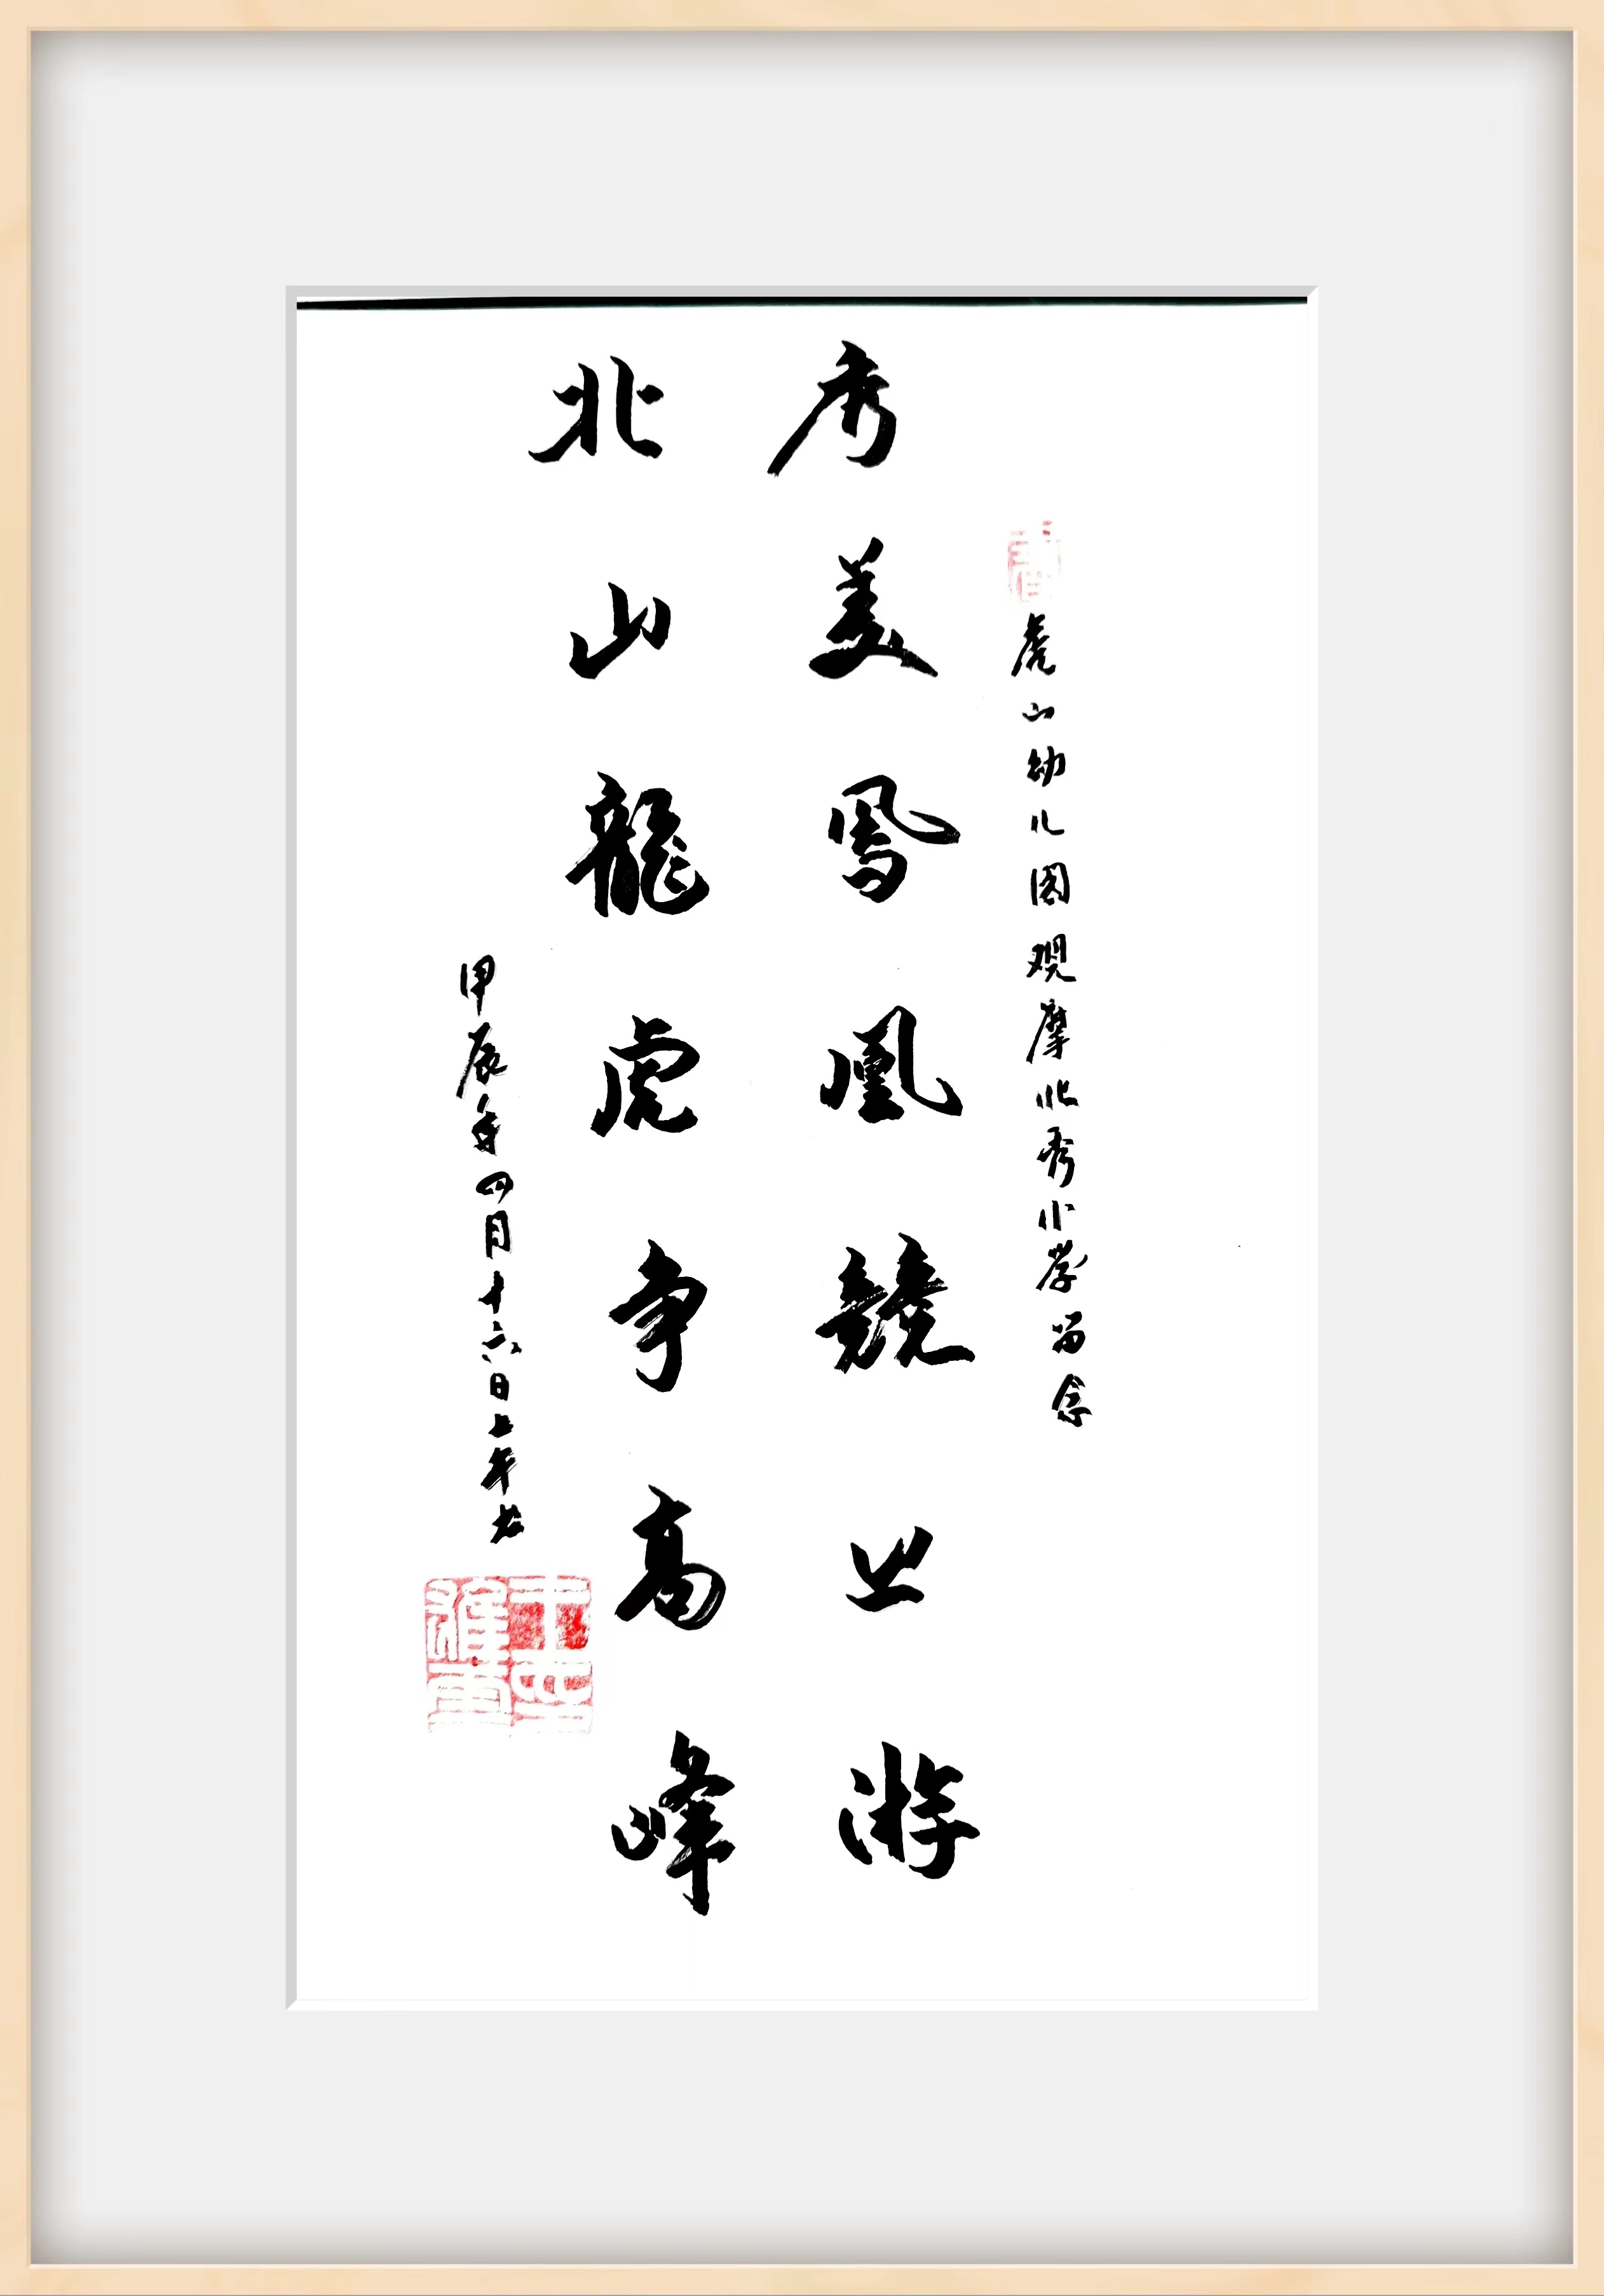 虎山幼儿园观摩北秀小学留念
秀美鳳凰競上游
北山龍虎争高峰
甲辰年四月十六日上午书